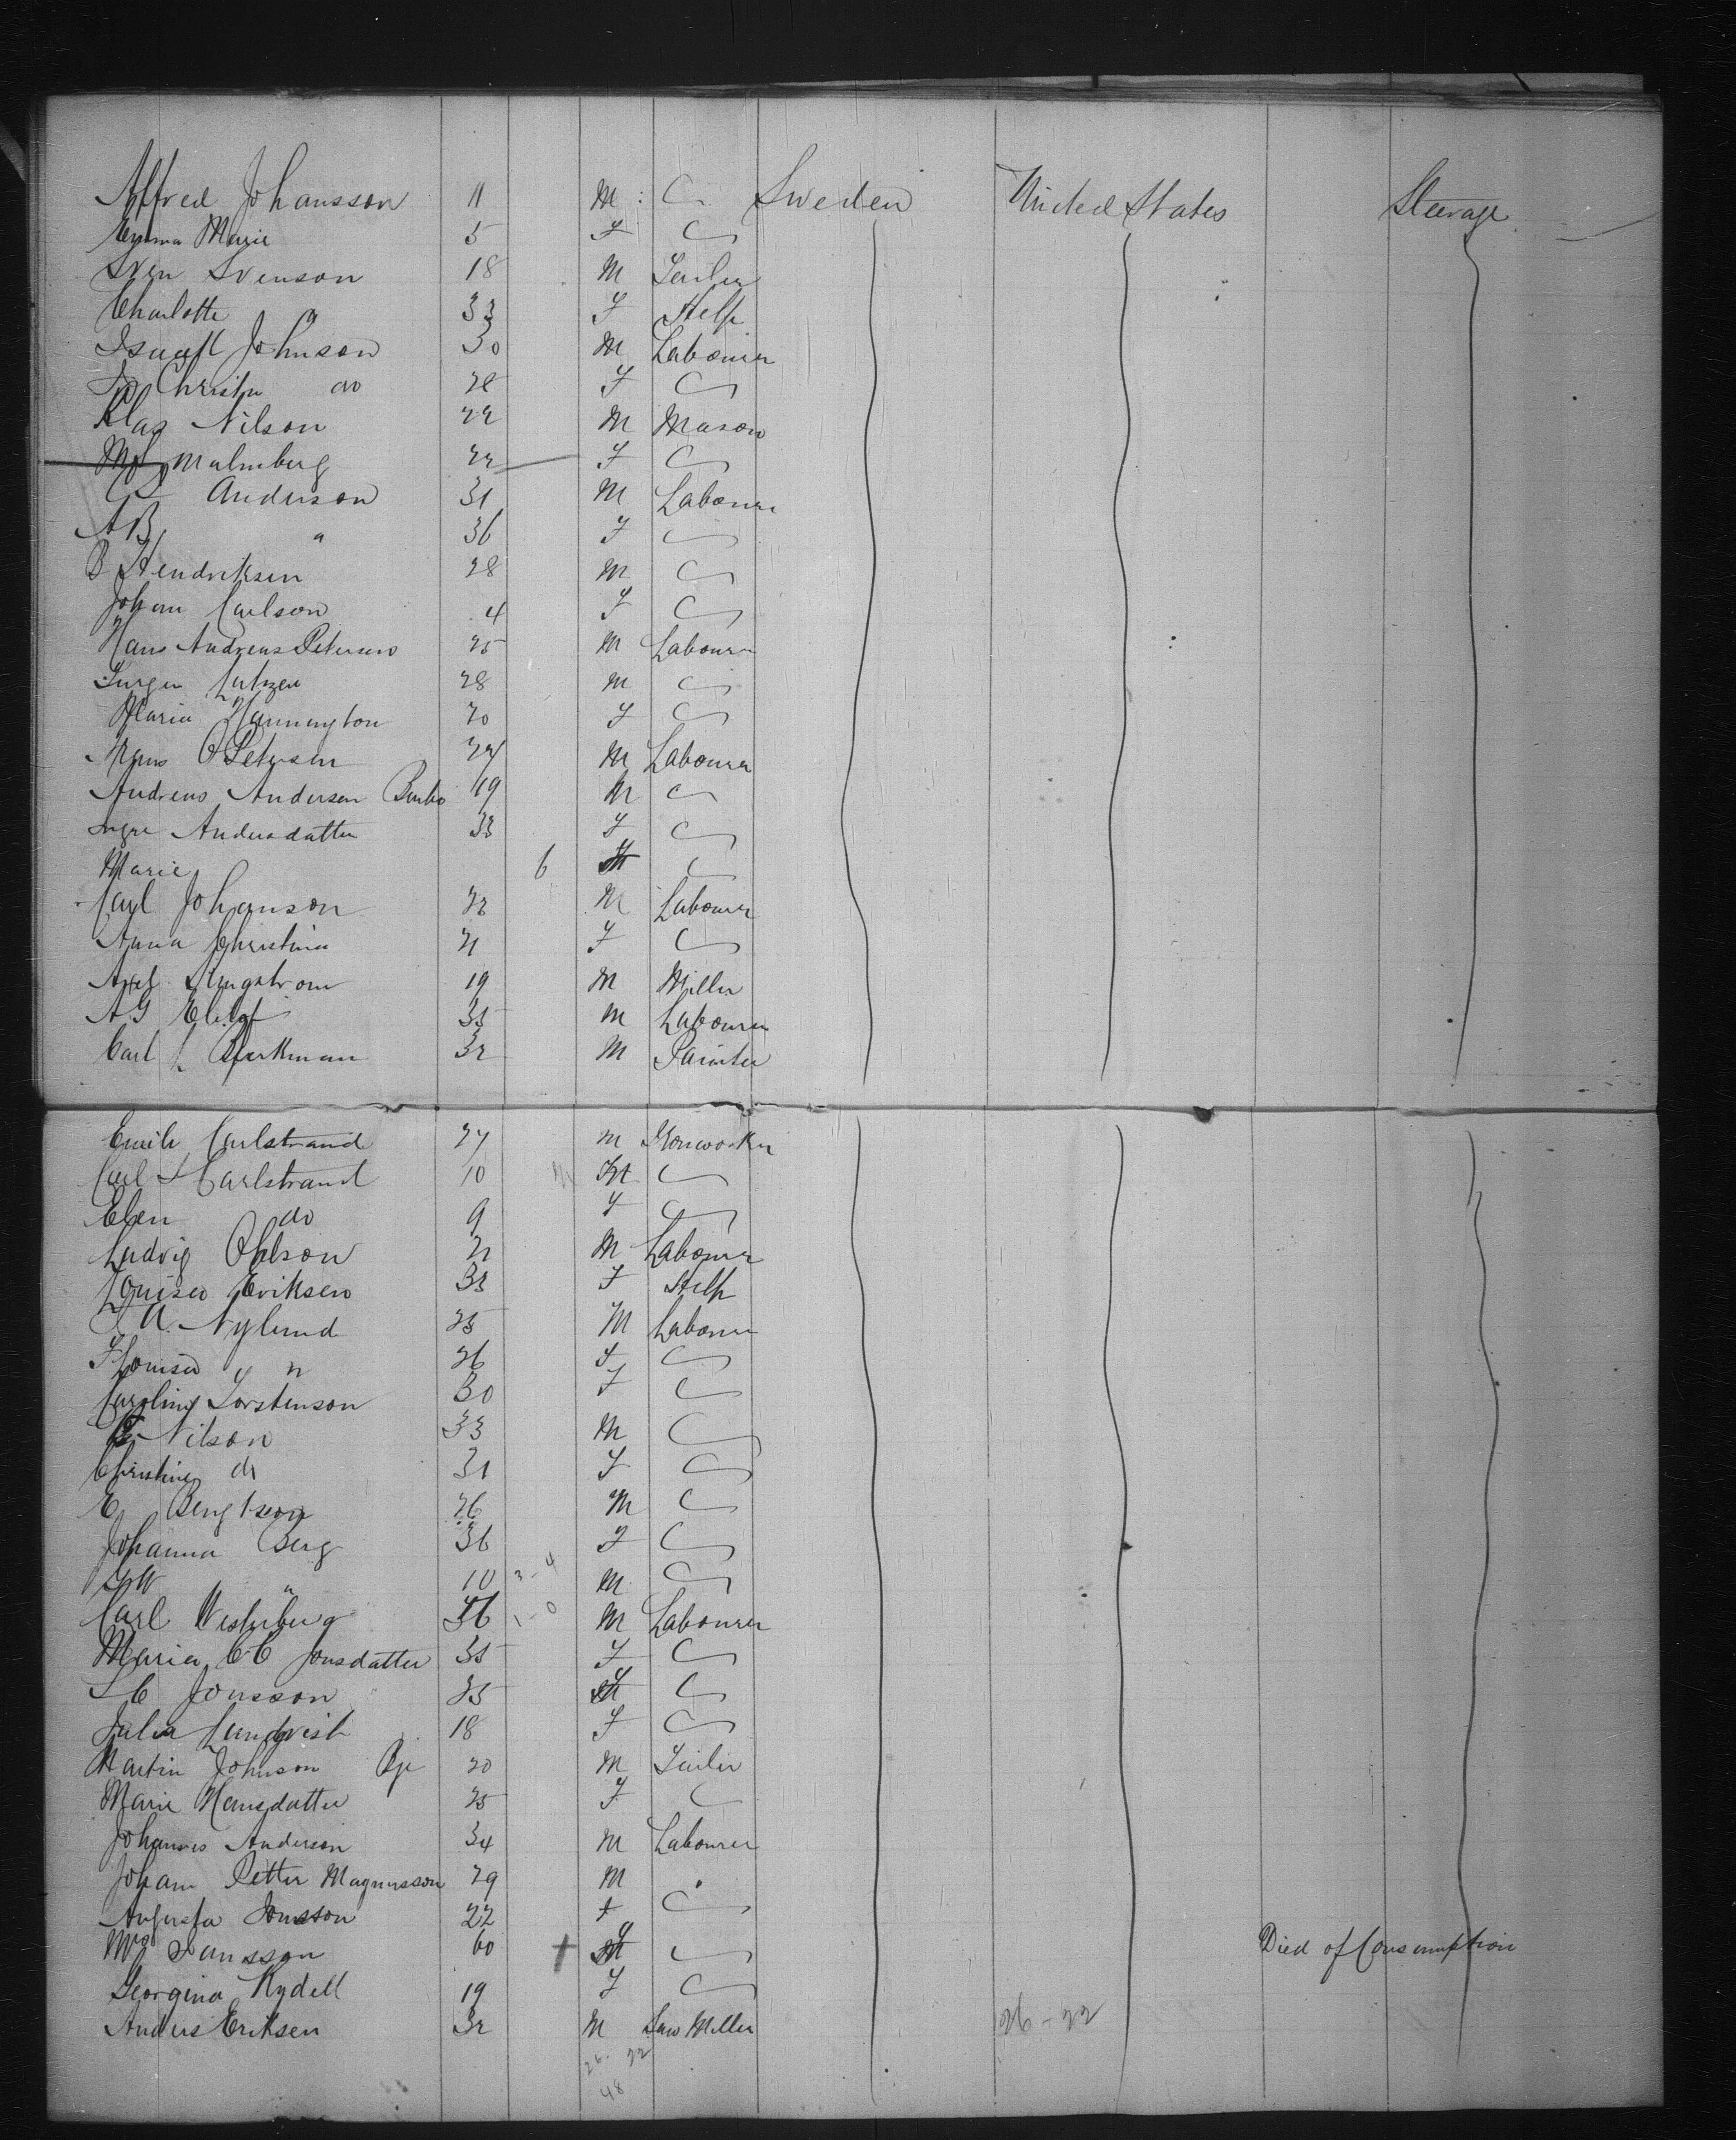 Alfred Johansson 11 M : C Sweden United States Steerage
Emma Marie 5 F
Sven Svenson 18 M Tailer
Charlotte " 33 F Help
Johnson 30 M Labourer
Christin do 28 F
Klas Nilson 22 M Mason
Malmberg 22 F
Anderson 31 M Labourer
A B " 36 F
B Hendriksen 28 M
Johan Carlson 4 F
Hans Andreas Petersen 25 M Labourer
28 M
Maria Hannington 20 F
Hans O Petersen 24 M Labourer
Andreas Andersen 19 M
Ingre Andersdatter 33 F
Marie 6 F
Carl Johanson 22 M Labourer
Anna Christina 21 F
Axel 19 M Miller
A G 35 M Labourer
Carl 32 M Painter
Emili Carlstrand 27 M Ironworker
Carl L Carlstrand 10 M
Elen do 9 F
Ludvig Ohlson 21 M Labourer
Louisa Eriksen 33 F Help
Nylund 25 M Labourer
F Louisa " 26 F
Caroline Torstenson 30 F
Nilson 33 M
Christine do 31 F
E Bengtson 26 M
Johanna Berg 36 F
" 10 3-4 M
Carl Westerberg 36 1-0 M Labourer
Maria C C Jonsdatter 35 F
Jonsson 25 F
Julia Lundqvist 18 F
Martin Johnson 20 M Tailer
Marie Hansdatter 25 F
Johannes Anderson 34 M Labourer
Johan Petter Magnusson 29 M "
Augusta Jonsson 22 F
Mrs Jansson 60 + F Died of Consumption
Georgina Rydell 19 F
Anders Eriksen 32 M Saw Miller 26-22
26. 22
48